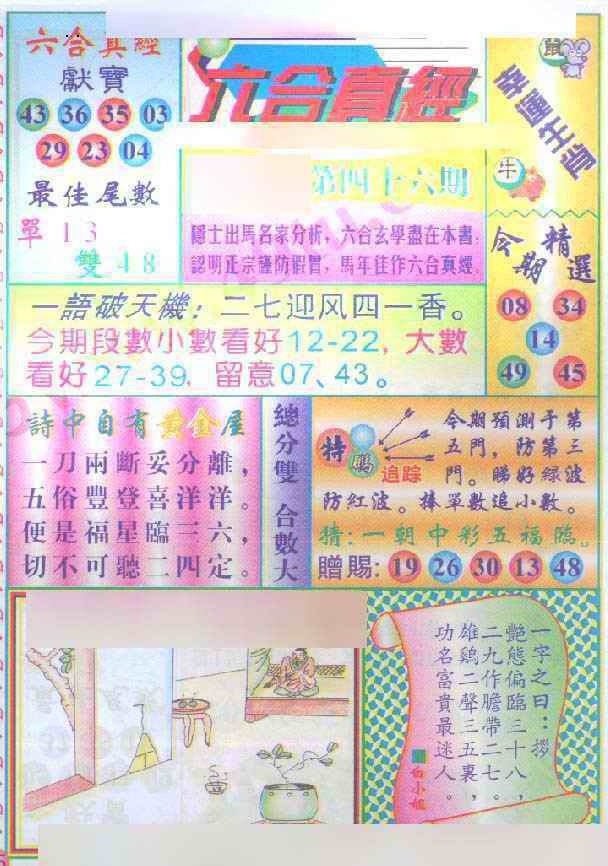 六合真經
獻寶
43 36 35 03
29 23 04
最佳尾數
單 1 3
雙 4 8
六合真經
第四十六期
隱士出馬名家分析，六合玄學盡在本書；
認明正宗謹防假冒，馬年佳作六合真經。
鼠
幸運生肖
牛
今期精選
08 34
14
49 45
一語破天機：二七迎风四一香。
今期段數小數看好12-22，大數
看好27-39，留意07、43。
詩中自有黃金屋
一刀兩斷妥分離，
五俗豐登喜洋洋。
便是福星臨三六，
切不可聽二四定。
總分雙 合數大
特碼
追踪
今期預測于第
五門，防第三
門。睇好綠波
防紅波。捧單數追小數。
猜:一朝中彩五福臨。
贈賜: 19 26 30 13 48
一字之曰：拶
艷態偏臨三十八，
二九作膽帶二七。
雄鷄二聲三五裏，
功名富貴最迷人。
白小姐